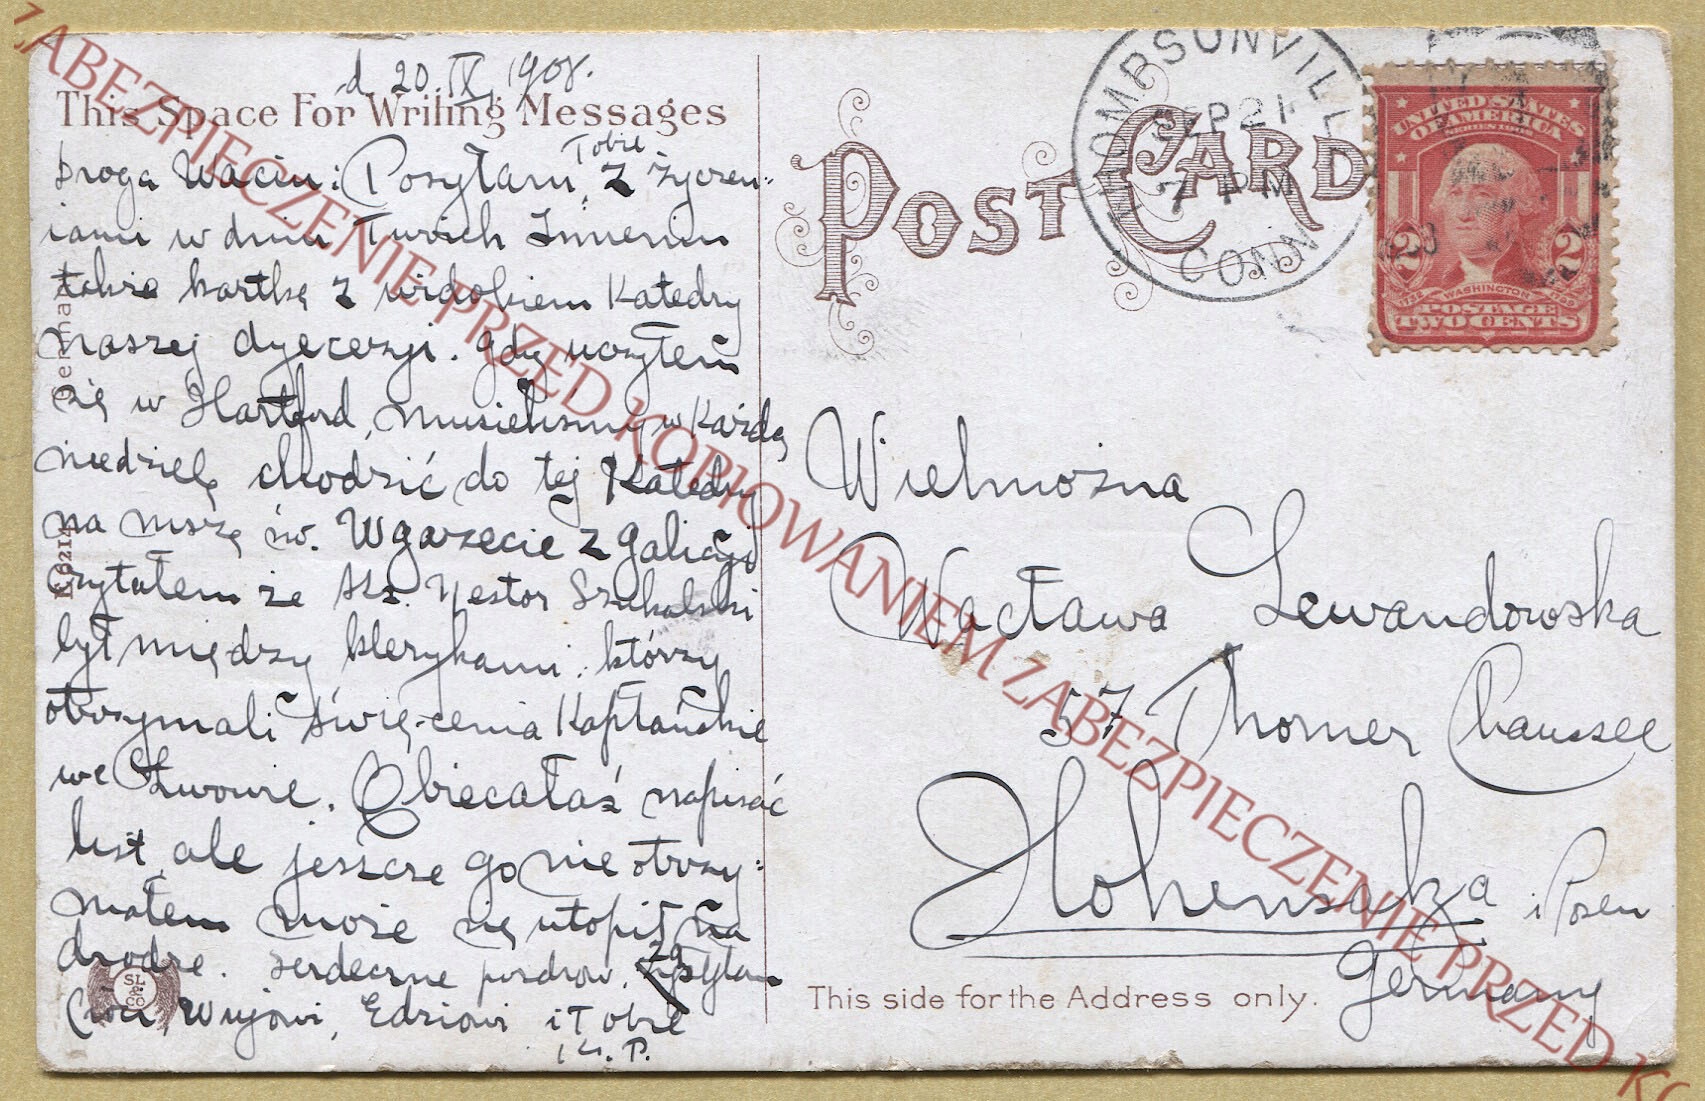 d. 20. IX. 1908.
This Space For Writing Messages
Tobie
Droga Waciu! Posyłam, z życzen-
iami w dniu Twoich Imienin
także kartkę z widokiem Katedry
naszej dyecezyi. gdy uczyłem
się w Hartford, musieliśmy w każdą
niedzielę chodzić do tej Katedry
na mszę św. W gazecie z galicyi
czytałem że Nestor Szukalski
był między klerykami którzy
otrzymali święcenia Kapłańskie
we Lwowie. Obiecałaś napisać
list, ale jeszcze go nie otrzy-
małem może się utopił na
drodze. serdeczne pozdrow. zasyłam
Cioci, Wujowi, Edziowi i Tobie
K. P.
German
E 6214
SL & Co
POST CARD
THOMPSONVILLE
SEP 21
7 PM
CONN.
UNITED STATES
OF AMERICA
SERIES 1902
2 2
1732 WASHINGTON 1799
POSTAGE
TWO CENTS
Wielmożna
Wacława Lewandowska
57 Thorner Chaussee
Hohensalza i Posen
Germany
This side for the Address only.
ZABEZPIECZENIE PRZED KOPIOWANIEM ZABEZPIECZENIE PRZED KO